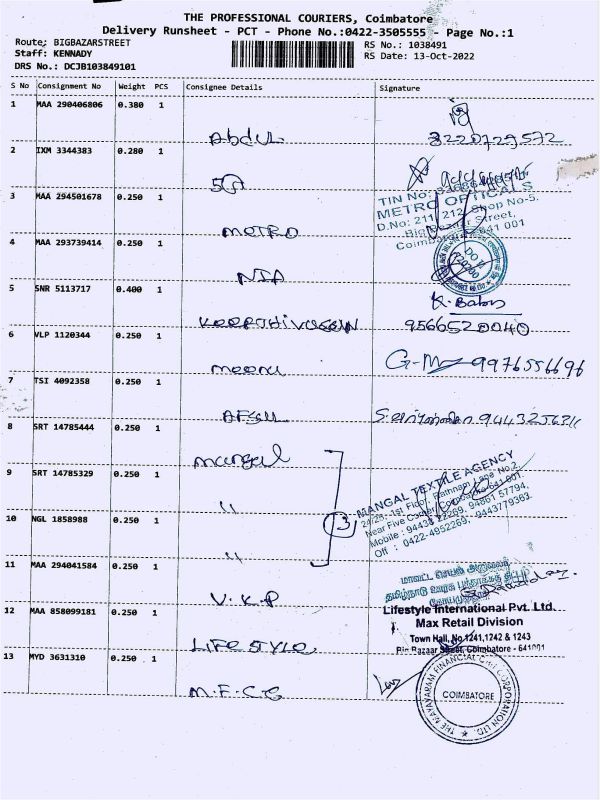 THE PROFESSIONAL COURIERS, Coimbatore
Delivery Runsheet - PCT - Phone No.:0422-3505555 - Page No.:1
Route: BIGBAZARSTREET
RS No.: 1038491
Staff: KENNADY
RS Date: 13-Oct-2022
DRS No.: DCJB103849101
S No Consignment No Weight PCS Consignee Details Signature
1 MAA 290406806 0.380 1
Abdul 8220729572
2 IXM 3344383 0.280 1
3 MAA 294501678 0.250 1
TIN No:
METRO OPTICALS
D.No: 211, 212, Shop No-5,
Big Bazaar Street,
Coimbatore-641 001
METRO
4 MAA 293739414 0.250 1
NIA
5 SNR 5113717 0.400 1
K. Babu
KEERTHIVASAN 9566520040
6 VLP 1120344 0.250 1
meenu 9976556696
7 TSI 4092358 0.250 1
AFSEL
8 SRT 14785444 0.250 1
mangal
9 SRT 14785329 0.250 1
MANGAL TEXTILE AGENCY
"
3
10 NGL 1858988 0.250 1
Off : 0422-4952269, 9443779363
"
11 MAA 294041584 0.250 1
மாவட்ட செயல் அலுவலர்
V.K.P
12 MAA 858099181 0.250 1
Lifestyle International Pvt. Ltd.
Max Retail Division
Town Hall, No.1241,1242 & 1243
Big Bazaar Street, Coimbatore - 641001
LIFE STYLE
13 MYD 3631310 0.250 1
THE MAYAVARAM FINANCIAL CHIT CORPORATION LTD.
COIMBATORE
M.F.C.C